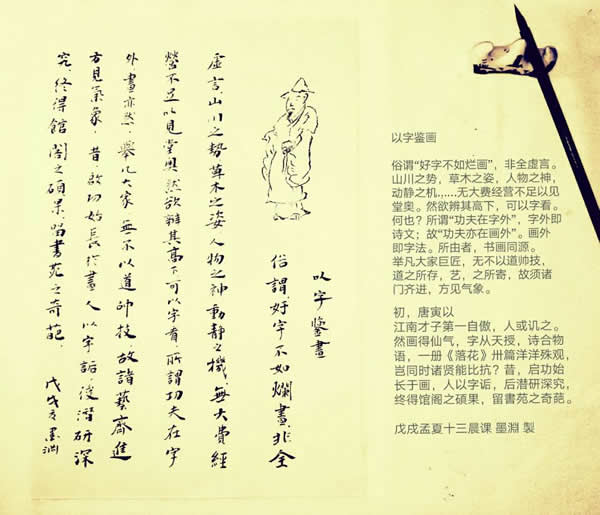 以字鑒畫
俗謂,好字不如爛畫,非全
虛言,山川之勢草木之姿人物之神動靜之機,無大費經
營不足以見堂奧然欲辨其高下可以字看,所謂功夫在字
外畫亦然,舉凡大家無不以道帥技故諸藝齊進
方見氣象,昔,啟功始長於畫人以字詬,後潛研深
究,終得館閣之碩果留書苑之奇葩,
戊戌夏墨渊
以字鉴画
俗谓“好字不如烂画”,非全虚言。
山川之势,草木之姿,人物之神,
动静之机,....无大费经营不足以见
堂奥。然欲辨其高下,可以字看。
何也?所谓“功夫在字外”,字外即
诗文;故“功夫亦在画外”。画外
即字法。所由者,书画同源。
举凡大家巨匠,无不以道帅技,
道之所存,艺,之所寄,故须诸
门齐进,方见气象。
初,唐寅以
江南才子第一自傲,人或讥之。
然画得仙气,字从天授,诗合物
语,一册《落花》卅篇洋洋殊观,
岂同时诸贤能比抗?昔,启功始
长于画,人以字诟,后潜研深究,
终得馆阁之碩果,留書苑之奇葩。
戊戌孟夏十三晨课 墨淵 製